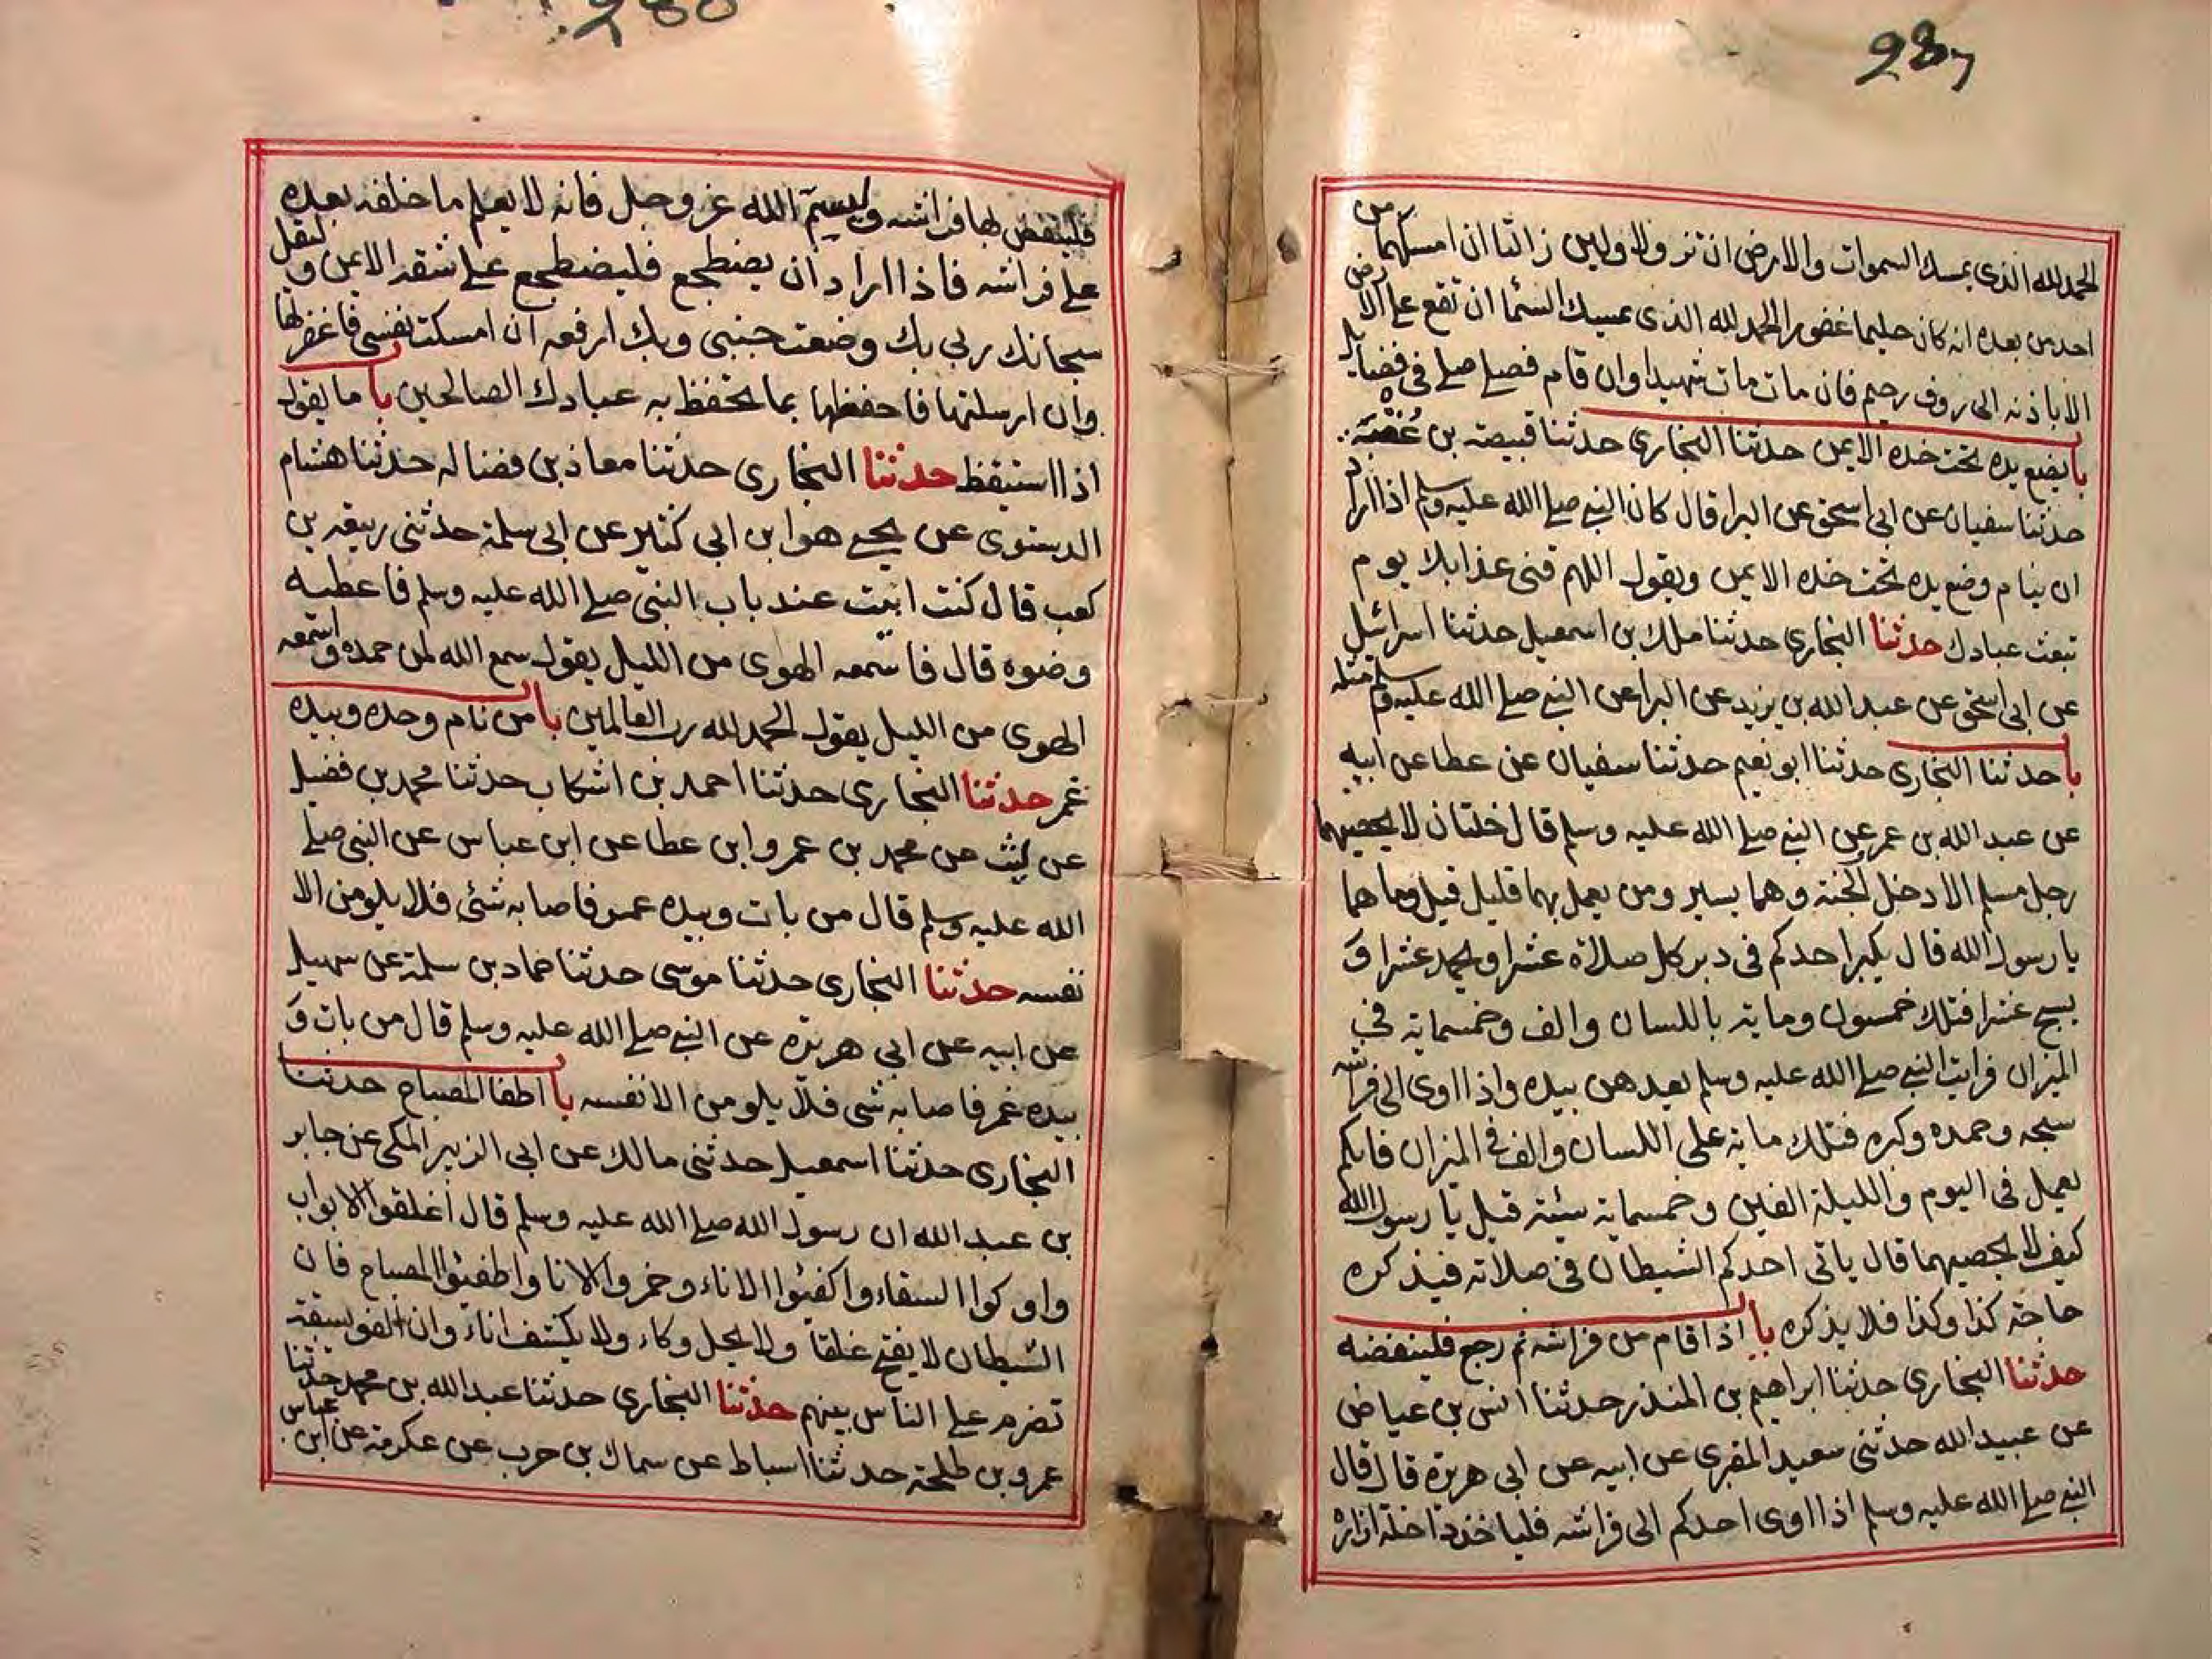 287
الحمد لله الذى يمسك السموات والارض ان تزولا ولين زالتا ان امسكهما من
احد من بعده انه كان حليما غفورا الحمد لله الذى يمسك السما ان تقع على الارض
الا باذنه الى روف رحيم فان مات مات شهيدا وان قام فصلى صلى فى فضايل
با يضع يده تحت خده الايمن حدثنا البخارى حدثنا قبيصة بن عقبة
حدثنا سفيان عن ابى اسحق عن البرا قال كان النبي صلى الله عليه وسلم اذا اراد
ان ينام وضع يده تحت خده الايمن ويقول اللهم قنى عذابك يوم
تبعث عبادك حدثنا البخارى حدثنا ملك بن اسمعيل حدثنا اسرائيل
عن ابى اسحق عن عبد الله بن يزيد عن البرا عن النبي صلى الله عليه وسلم مثله
با حدثنا البخارى حدثنا ابو نعيم حدثنا سفيان عن عطا عن ابيه
عن عبد الله بن عمر عن النبي صلى الله عليه وسلم قال خلتان لا يحصيهما
رجل مسلم الا دخل الجنة وهما يسير ومن يعمل بهما قليل قيل وما هما
يا رسول الله قال يكبر احدكم فى دبر كل صلاة عشرا ويحمد عشرا و
يسبح عشرا فتلك خمسون وماية باللسان والف وخمسماية في
الميزان فرايت النبي صلى الله عليه وسلم يعدهن بيده واذا اوى الى فراشه
سبحه وحمده وكبره فتلك ماية على اللسان والف فى الميزان فايكم
يعمل فى اليوم والليلة الفين وخمسماية سيئة قيل يا رسول الله
كيف لا يحصيهما قال ياتى احدكم الشيطان فى صلاته فيذكره
حاجة كذا وكذا فلا يذكره با اذا قام من فراشه ثم رجع فلينفضه
حدثنا البخارى حدثنا ابراهيم بن المنذر حدثنا انس بن عياض
عن عبيد الله حدثنى سعيد المقبرى عن ابيه عن ابى هريرة قال قال
النبي صلى الله عليه وسلم اذا اوى احدكم الى فراشه فلياخذ داخلة ازاره
فلينفض بها فراشه وليسم الله عز وجل فانه لا يعلم ما خلفه بعده
على فراشه فاذا اراد ان يضطجع فليضطجع على شقه الايمن وليقل
سبحانك ربى بك وضعت جنبى وبك ارفعه ان امسكت نفسى فاغفر لها
وان ارسلتها فاحفظها بما تحفظ به عبادك الصالحين با ما يقول
اذا استيقظ حدثنا البخارى حدثنا معاذ بن فضاله حدثنا هشام
الدستوى عن يحيى هو ابن ابى كثير عن ابى سلمة حدثنى ربيعة بن
كعب قال كنت ابيت عند باب النبى صلى الله عليه وسلم فاعطيه
وضوه قال فاسمعه الهوى من الليل يقول سمع الله لمن حمده واسمعه
الهوى من الليل يقول الحمد لله رب العالمين با من نام وحده وبيده
غمر حدثنا البخارى حدثنا احمد بن اشكاب حدثنا محمد بن فضيل
عن ليث عن محمد بن عمرو ابن عطا عن ابن عباس عن النبى صلى
الله عليه وسلم قال من بات وبيده غمر فاصابه شئ فلا يلومن الا
نفسه حدثنا البخارى حدثنا موسى حدثنا حماد بن سلمة عن سهيل
عن ابيه عن ابى هريرة عن النبي صلى الله عليه وسلم قال من بات و
بيده غمر فاصابه شى فلا يلومن الا نفسه با اطفا المصباح حدثنا
البخارى حدثنا اسمعيل حدثنى مالك عن ابى الزبير المكى عن جابر
بن عبد الله ان رسول الله صلى الله عليه وسلم قال اغلقوا الابواب
واوكوا السقاء واكفئوا الاناء وخمروا الانا واطفئوا المصباح فان
الشيطان لا يفتح غلقا ولا يحل وكاء ولا يكشف اناء وان الفويسقة
تضرم على الناس بيتهم حدثنا البخارى حدثنا عبد الله بن محمد حدثنا
عمرو بن طلحة حدثنا اسباط عن سماك بن حرب عن عكرمة عن ابن عباس